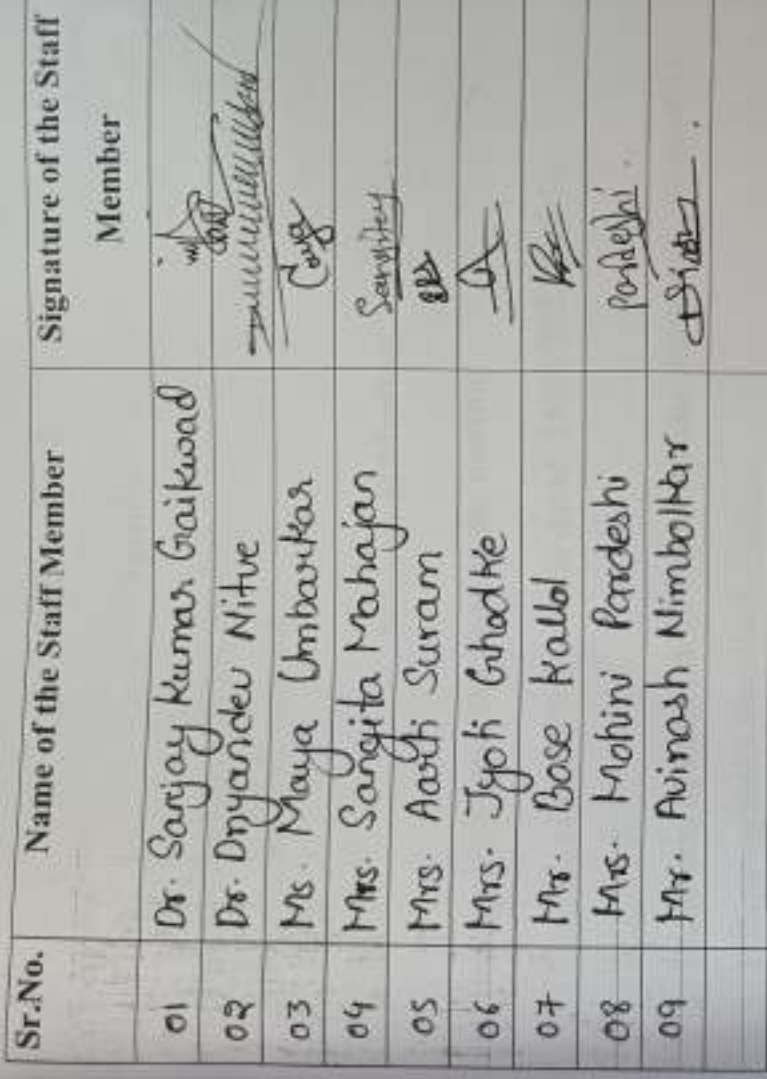 Sr.No. Name of the Staff Member Signature of the Staff Member
01 Dr. Sanjay Kumar Gaikwad
02 Dr. Dnyandev Nitve
03 Ms. Maya Umbarkar
04 Mrs. Sangita Mahajan
05 Mrs. Aarti Suram
06 Mrs. Jyoti Ghodke
07 Mr. Bose Kallol
08 Mrs. Mohini Pardeshi Pardeshi.
09 Mr. Avinash Nimbolkar